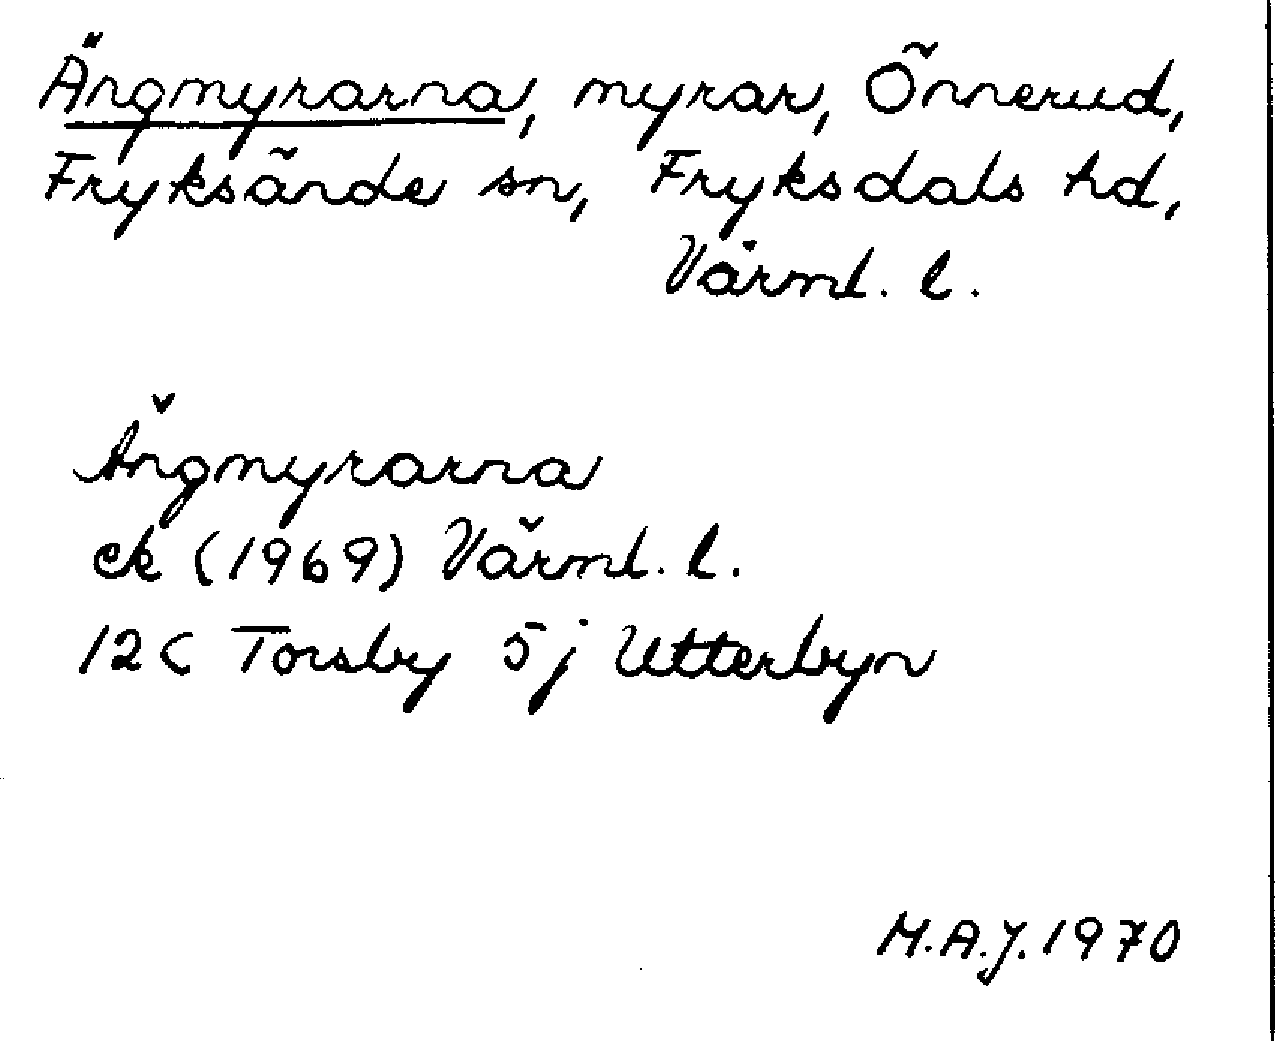 Ängmyrarna, myrar, Önnerud,
Fryksände sn, Fryksdals hd,
Värml. l.
Ängmyrarna
ek (1969) Värml. l.
12C Torsby 5j Utterbyn
M.A.J. 1970